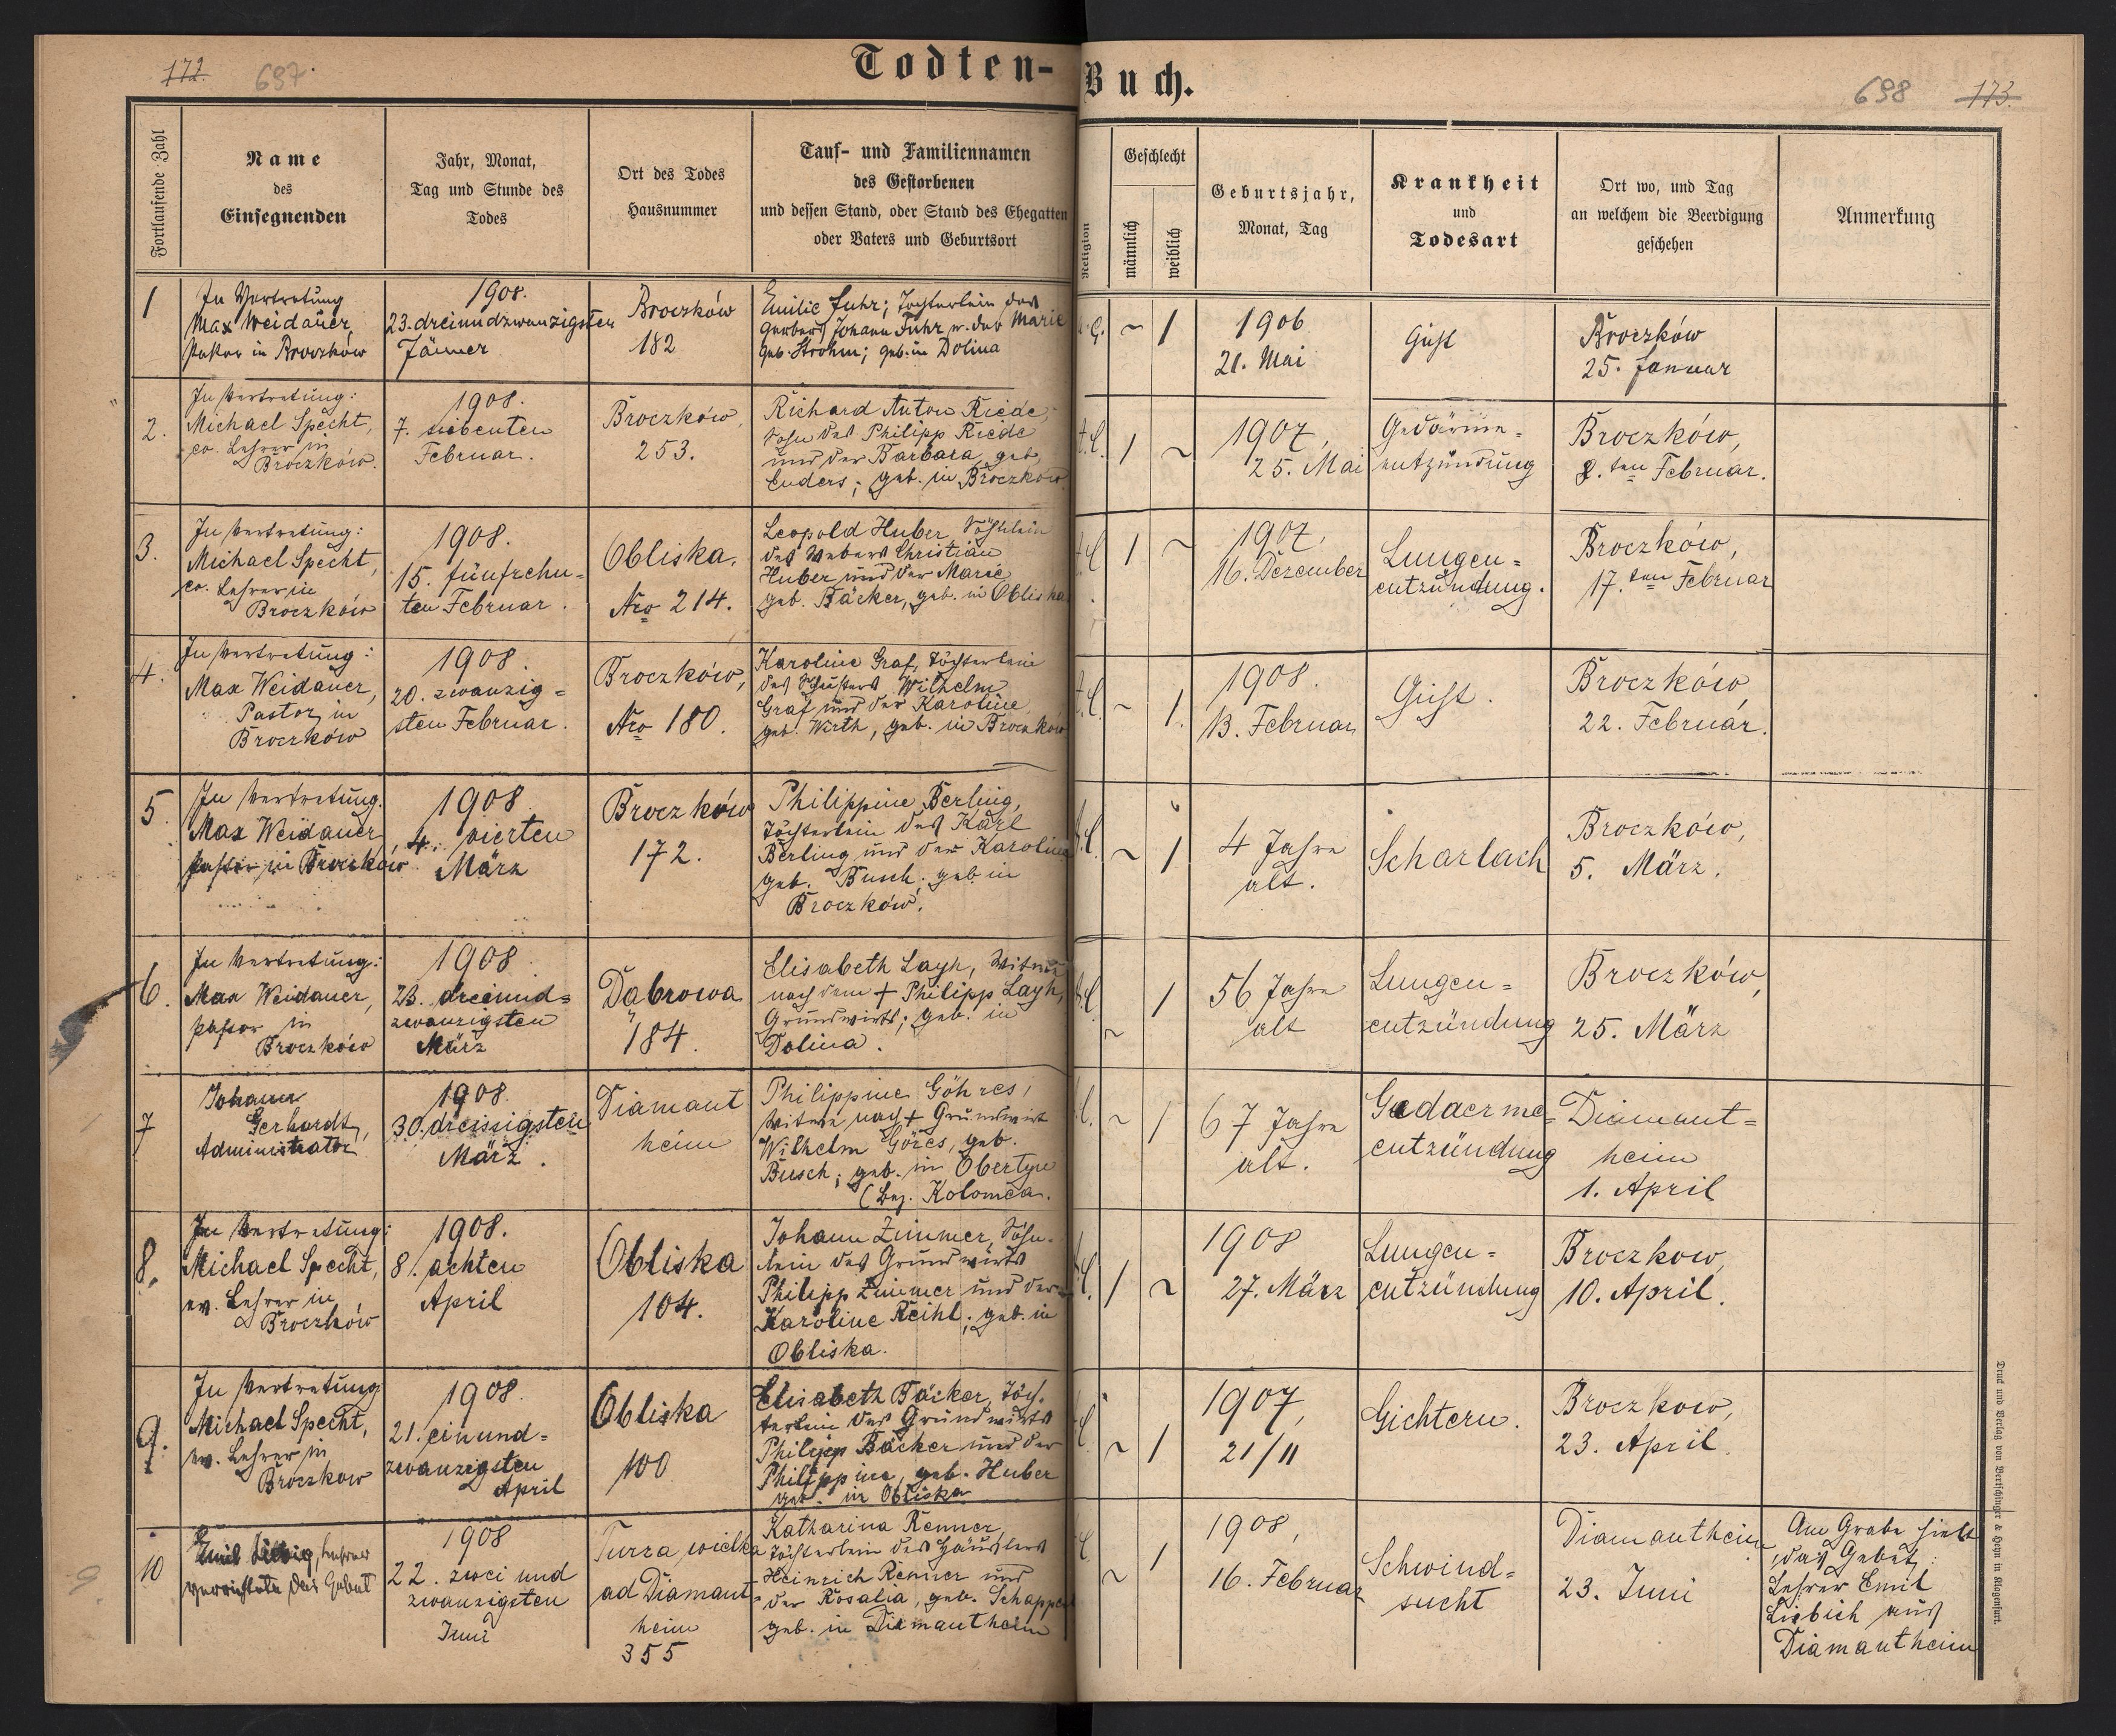 172. 697.
Todten-Buch.
698 173.
Fortlaufende Zahl
Name
des
Einsegnenden
Jahr, Monat,
Tag und Stunde des
Todes
Ort des Todes
Hausnummer
Tauf- und Familiennamen
des Gestorbenen
und dessen Stand, oder Stand des Ehegatten
oder Vaters und Geburtsort
Religion
Geschlecht
männlich
weiblich
Geburtsjahr,
Monat, Tag
Krankheit
und
Todesart
Ort wo, und Tag
an welchem die Beerdigung
geschehen
Anmerkung
1
In Vertretung
Max Weidauer,
Pastor in Broczków
1908.
23. dreiundzwanzigsten
Jänner
Broczków
182
Emilie Fuhr; Töchterlein des
Gerbers Johann Fuhr u. der Marie
geb. Strohm; geb. in Dolina
~ 1
1906
21. Mai
Gicht
Broczków
25. Januar
2.
In Vertretung:
Michael Specht,
ev. Lehrer in
Broczków.
1908.
7. siebenten
Februar.
Broczków,
253.
Richard Anton Riede,
Sohn des Philipp Riede
und der Barbara geb.
Enders; geb. in Broczków
1 ~
1907,
25. Mai
Gedärme=
entzündung
Broczków,
8. ten Februar.
3.
In Vertretung:
Michael Specht,
ev. Lehrer in
Broczków
1908.
15. fünfzehn=
ten Februar.
Obliska,
Nro 214.
Leopold Huber, Söhnlein
des Webers Christian
Huber und der Marie
geb. Bäcker, geb. in Obliska
1 ~
1907,
16. Dezember
Lungen=
entzündung.
Broczków,
17. ten Februar
4.
In Vertretung:
Max Weidauer,
Pastor in
Broczków
1908.
20. zwanzig=
sten Februar.
Broczków,
Nro 180.
Karoline Graf, Töchterlein
des Schusters Wilhelm
Graf und der Karoline
geb. Wirth, geb. in Broczków
~ 1.
1908.
13. Februar
Gicht.
Broczków
22. Februar.
5
In Vertretung.
Max Weidauer
Pastor in Broczków
1908
4. vierten
März
Broczków
172.
Philippine Berling,
Töchterlein des Karl
Berling und der Karoline
geb. Busch; geb. in
Broczków.
~ 1
4 Jahre
alt.
Scharlach
Broczków,
5. März.
6.
In Vertretung:
Max Weidauer,
Pastor in
Broczków
1908
23. dreiund=
zwanzigsten
März
Dąbrowa
184.
Elisabeth Layh, Witwe
nach dem + Philipp Layh,
Grundwirts; geb. in
Dolina.
~ 1
56 Jahre
alt
Lungen=
entzündung
Broczków,
25. März
7
Johann
Gerhardt,
Administrator
1908.
30. dreissigsten
März.
Diamant
heim
Philippine Göhres,
Witwe nach + Grundwirt
Wilhelm Göres, geb.
Busch; geb. in Obertyn
(Bez. Kolomea.
~ 1
67 Jahre
alt.
Gedaerme=
entzündung
Diamant=
heim
1. April
8.
In Vertretung:
Michael Specht,
ev. Lehrer in
Broczków
1908.
8. achten
April
Obliska
104.
Johann Zimmer, Söhn=
lein des Grundwirts
Philipp Zimmer und der
Karoline Reihl; geb. in
Obliska.
1 ~
1908
27. März
Lungen=
entzündung
Broczkow,
10. April.
9.
In Vertretung
Michael Specht,
ev. Lehrer in
Broczkow
1908.
21. einund=
zwanzigsten
April
Obliska
100
Elisabeth Bäcker, Töch=
terlein des Grundwirts
Philipp Bäcker und der
Philippine, geb. Huber
geb. in Obliska
~ 1
1907,
21/11
Gichtern.
Broczkow,
23. April.
10
Emil Liebig, Lehrer
verrichtete das Gebet
1908
22. zwei und
zwanzigsten
Juni
Turza wielka
ad Diamant=
heim
355
Katharina Renner,
Töchterlein des Häuslers
Heinrich Renner und
der Rosalia, geb. Schappert
geb. in Diamantheim
~ 1
1908,
16. Februar
Schwind=
sucht
Diamantheim
23. Juni
Am Grabe hielt
das Gebet:
Lehrer Emil
Liebich aus
Diamantheim
Druck und Verlag von Bertschinger & Heyn in Klagenfurt.